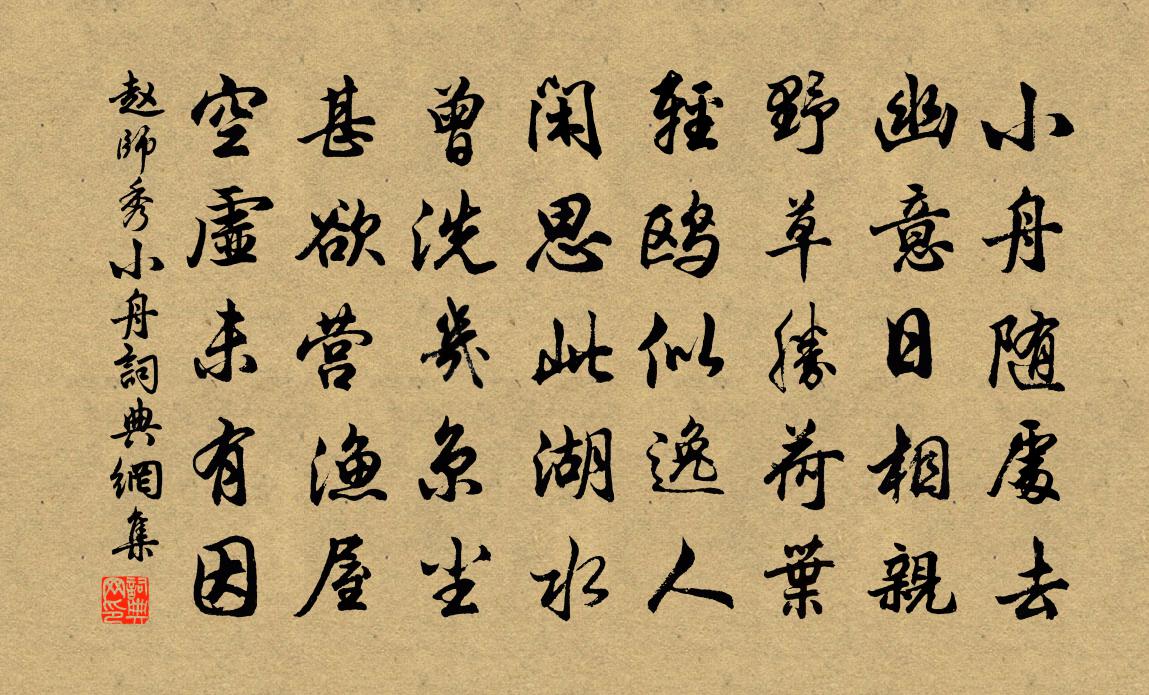 小舟随處去
幽意日相親
野草勝荷葉
輕鷗似逸人
閑思此湖水
曾洗幾京尘
甚欲营漁屋
空虚未有因
赵師秀小舟詞典網集
詞典网印